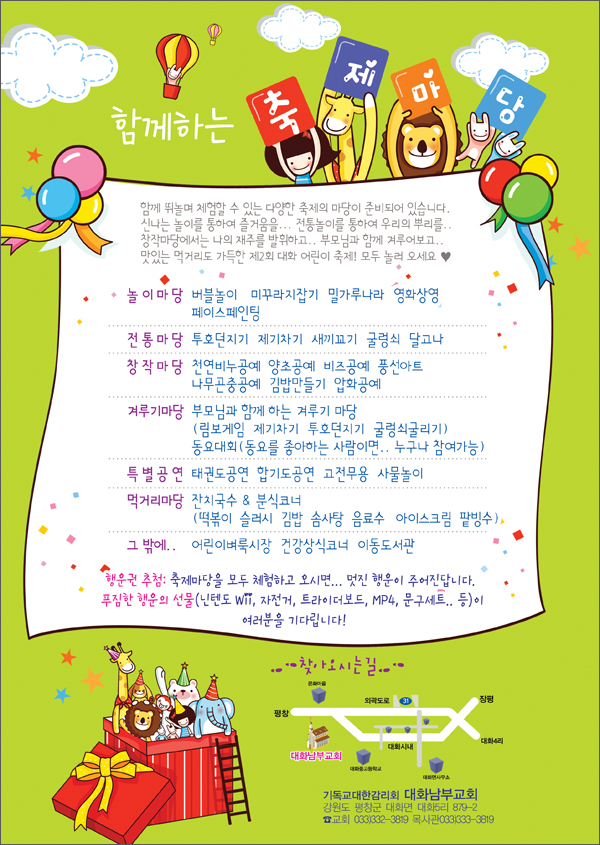 함께하는 축제마당
함께 뛰놀며 체험할 수 있는 다양한 축제의 마당이 준비되어 있습니다.
신나는 놀이를 통하여 즐거움을... 전통놀이를 통하여 우리의 뿌리를..
창작마당에서는 나의 재주를 발휘하고.. 부모님과 함께 겨루어보고..
맛있는 먹거리도 가득한 제2회 대화 어린이 축제! 모두 놀러 오세요 ♥
놀이마당 버블놀이 미꾸라지잡기 밀가루나라 영화상영
페이스페인팅
전통마당 투호던지기 제기차기 새끼꼬기 굴렁쇠 달고나
창작마당 천연비누공예 양초공예 비즈공예 풍선아트
나무곤충공예 김밥만들기 압화공예
겨루기마당 부모님과 함께 하는 겨루기 마당
(림보게임 제기차기 투호던지기 굴렁쇠굴리기)
동요대회(동요를 좋아하는 사람이면.. 누구나 참여가능)
특별공연 태권도공연 합기도공연 고전무용 사물놀이
먹거리마당 잔치국수 & 분식코너
(떡볶이 슬러시 김밥 솜사탕 음료수 아이스크림 팥빙수)
그 밖에.. 어린이벼룩시장 건강상식코너 이동도서관
행운권 추첨: 축제마당을 모두 체험하고 오시면... 멋진 행운이 주어진답니다.
푸짐한 행운의 선물(닌텐도 Wii, 자전거, 트라이더보드, MP4, 문구세트.. 등)이
여러분을 기다립니다!
찾아오시는길
문화마을
평창
외곽도로
31
장평
대화남부교회
대화시내
대화4리
대화중고등학교
대화면사무소
기독교대한감리회 대화남부교회
강원도 평창군 대화면 대화5리 879-2
☎교회 033)332-3819 목사관033)333-3819